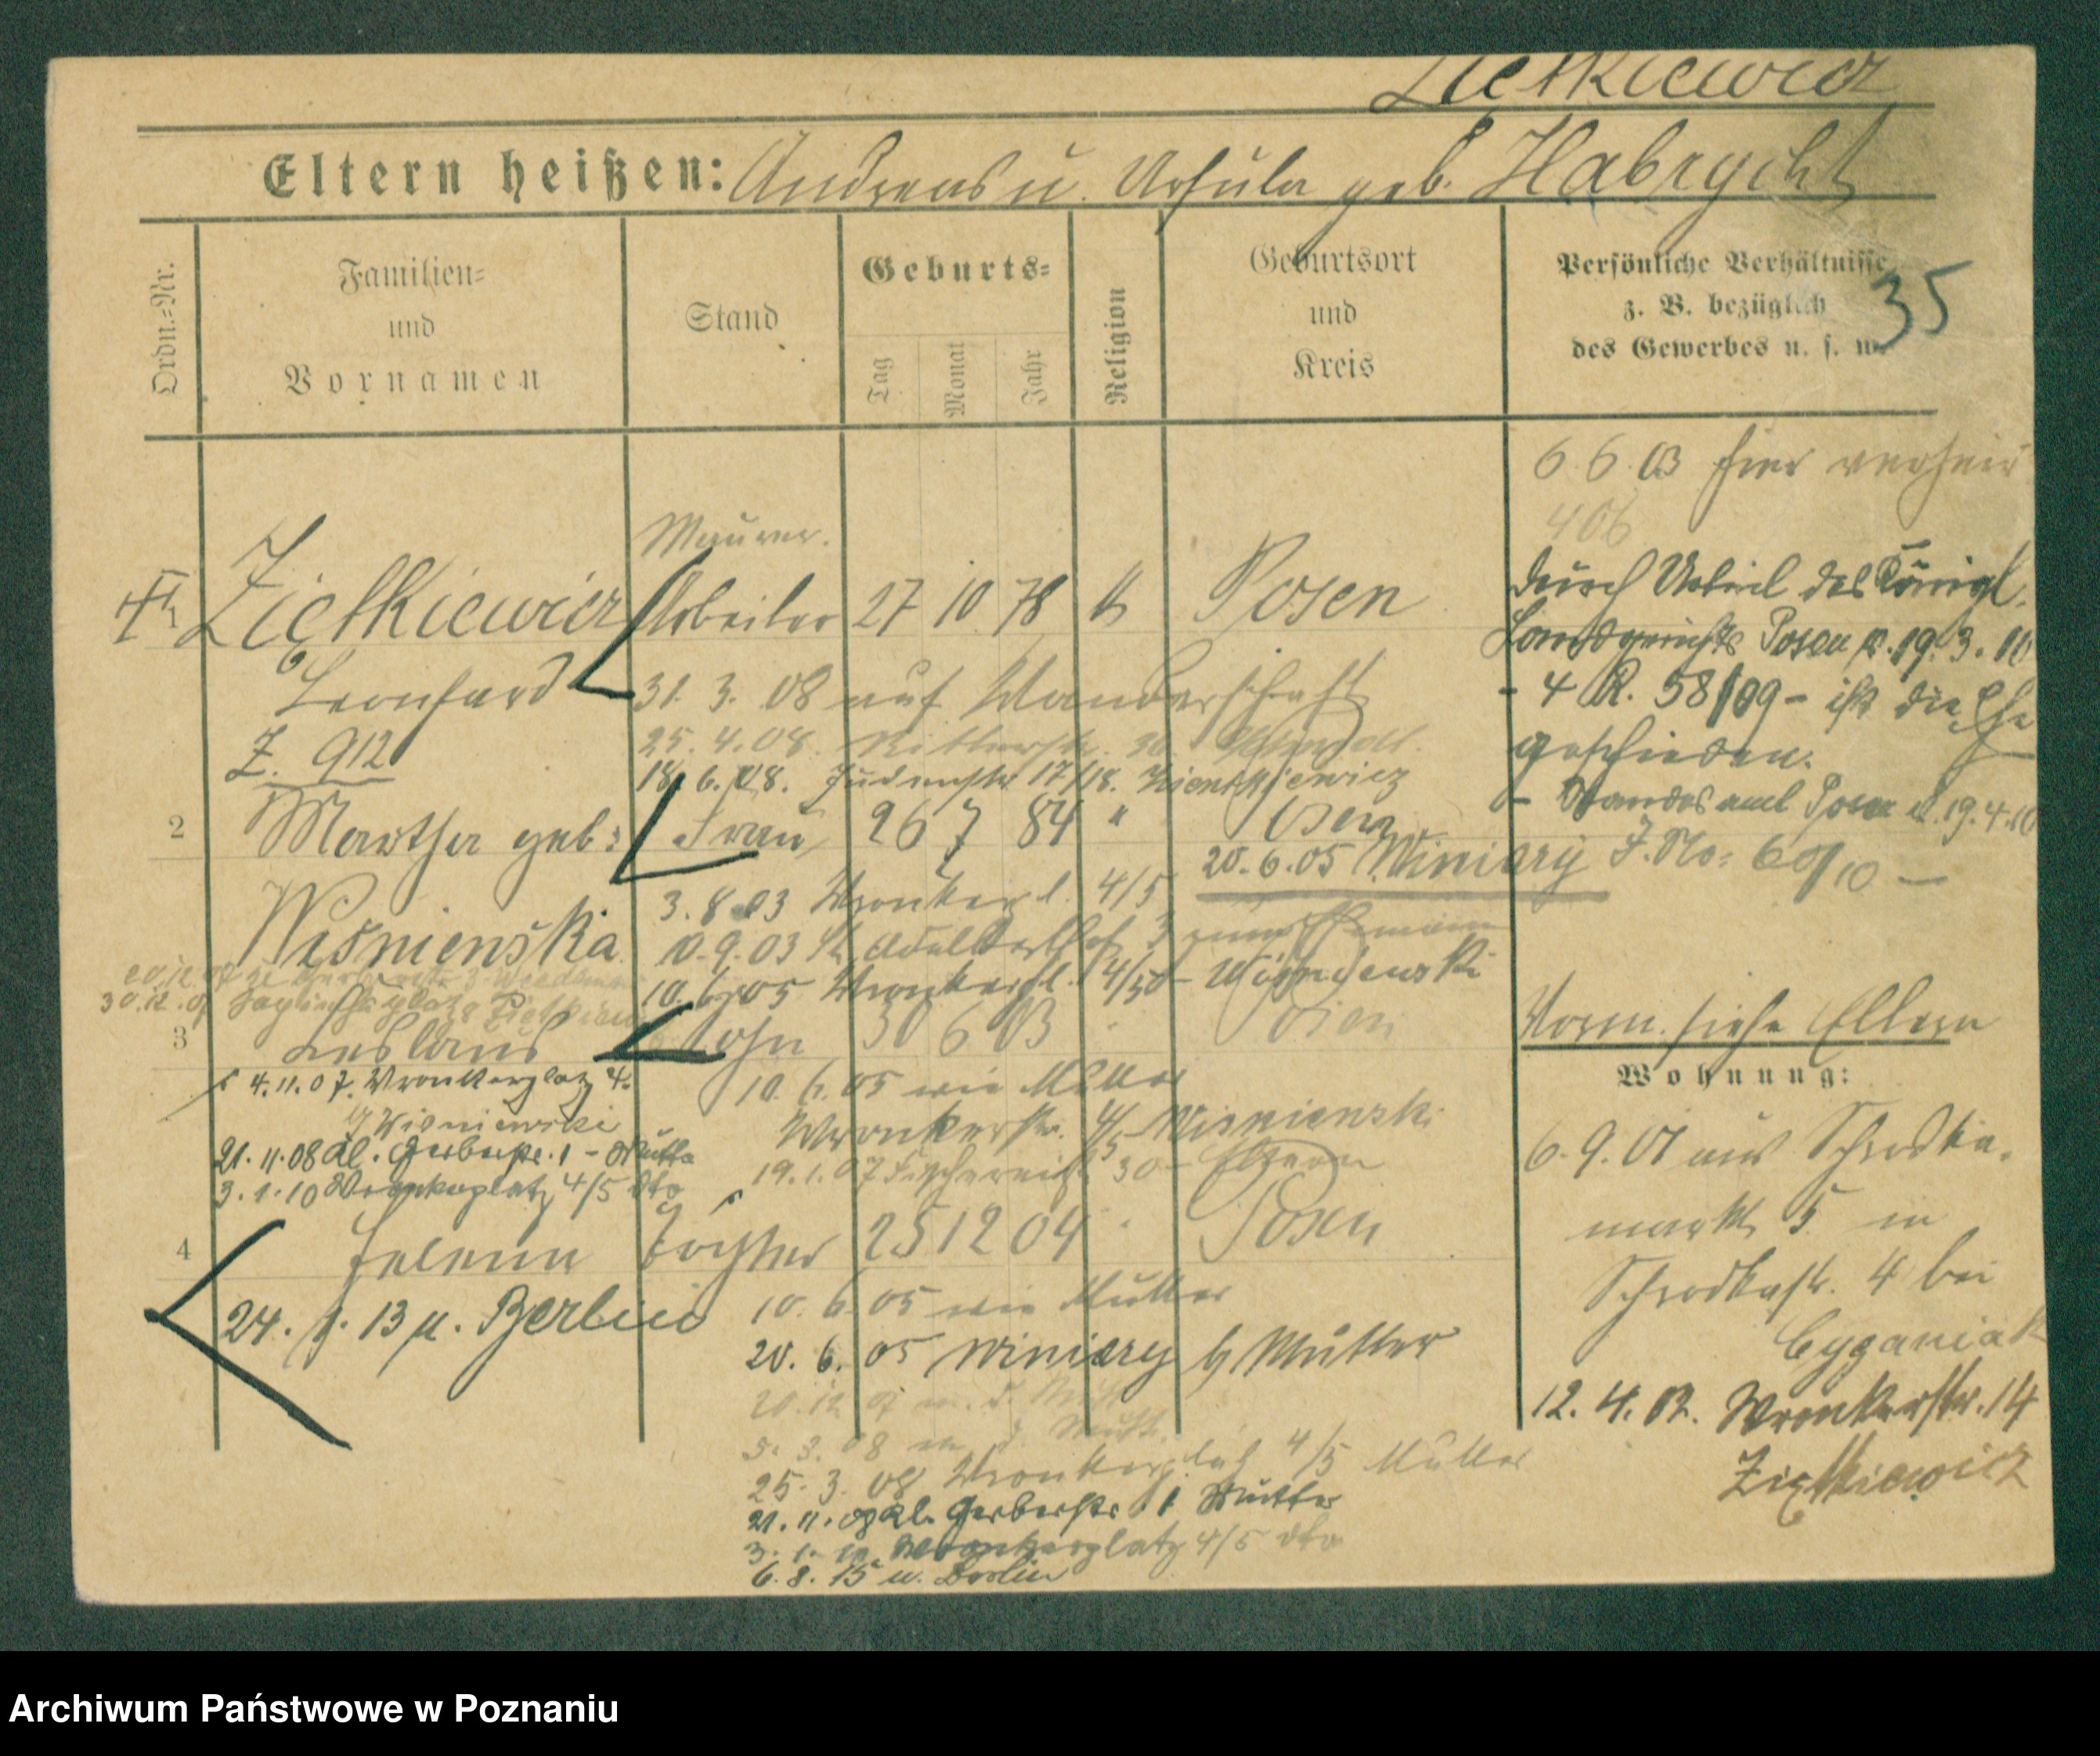 Zietkiewicz
Eltern heißen: Andreas u. Ursula geb. Habrycht
Ordn.-Nr.
Familien-
und
Vornamen
Stand
Geburts-
Tag
Monat
Jahr
Religion
Geburtsort
und
Kreis
Persönliche Verhältnisse
z. B. bezüglich
des Gewerbes u. s. w.
35
6. 6. 03 hier verheir
406
Maurer.
Ziętkiewicz Arbeiter 27 10 78 k Posen
durch Urteil des Königl.
Landgerichts Posen v. 19. 3. 10
- 4 R. 58/09 - ist die Ehe
geschieden.
- Standesamt Posen d. 19. 4. 10
J. No: 60/10 -
Leonhard
31. 3. 08 auf Wanderschaft
Z. 912
25. 4. 08.
18. 6. 08. Judenstr 17/18.
2 Martha geb: Frau 26 7 84 " Posen
20. 6. 05 Winiary
3. 8. 03 Wronkerpl. 4/5
Wisnienska
10. 9. 03 St. Adalbert 3 zum Ehemann
10. 6. 05 Wronkerpl. 4/5 - Wisnienski
20.12.07
30.12.07
3 Leslaus Sohn 30 6 03 Posen
Vorm. siehe Eltern
Wohnung:
4. 11. 07. Wronkerplatz 4.
Wisniewski
21. 11. 08 Kl. Gerberstr. 1 - Mutter
3. 1. 10 Wronkerplatz 4/5 dto
10. 6. 05 wie Mutter
Wronkerstr. 4/5 Wisnienski
19. 1. 07 Fischerei 30
6. 9. 01 aus Schrodka-
markt 5 in
Schrodkastr. 4 bei
Cyganiak
12. 4. 02. Wronkerstr. 14
Ziętkiewicz
4 Helene Tochter 25 12 04 Posen
24. 1. 13 n. Berlin
10. 6. 05 wie Mutter
20. 6. 05 Winiary b/ Mutter
20. 12. 07
5. 3. 08
25. 3. 08 Wronkerplatz 4/5 Mutter
21. 11. 08 Kl. Gerberstr. 1 Mutter
3. 1. 10 Wronkerplatz 4/5 dto
6. 8. 15 n. Berlin
Archiwum Państwowe w Poznaniu